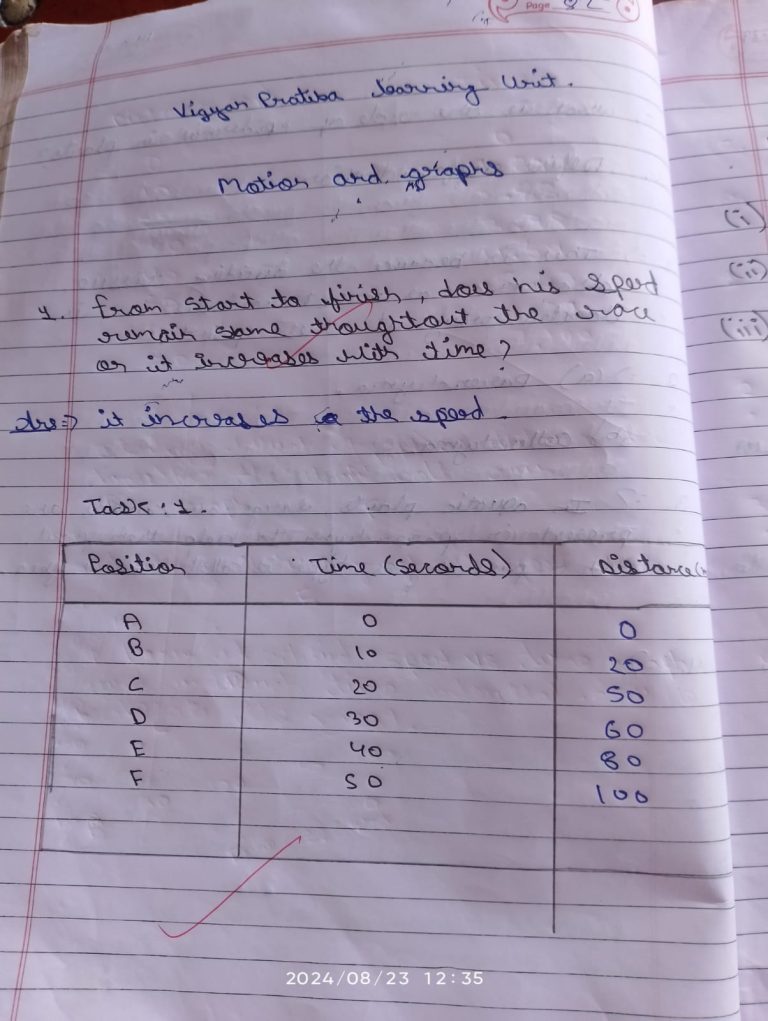 Page 82
Vigyan Pratiba Learning Unit.
Motion and graphs
1. from start to finish, does his speed
remain same thoughtout the race
or it increases with time?
Ans⇒ it increases the speed.
Task:1.
Position Time (Seconds) Distance(
A 0 0
B 10 20
C 20 50
D 30 60
E 40 80
F 50 100
(i)
(ii)
(iii)
2024/08/23 12:35